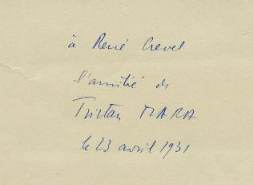 à René Crevel
l'amitié de
Tristan TZARA
le 23 avril 1931